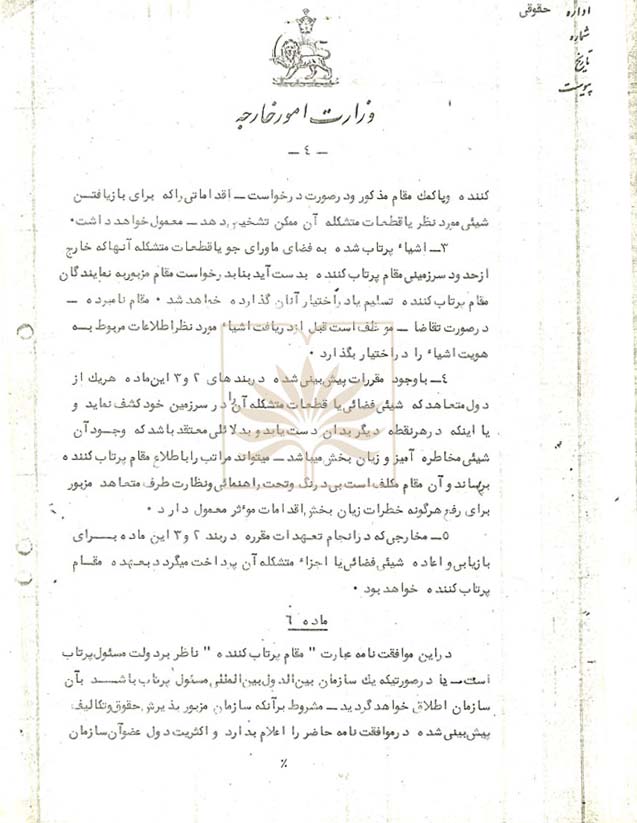 اداره حقوقی
شماره
تاریخ
پیوست
وزارت امور خارجه
ـ ٤ ـ
کننده وباکمک مقام مذکور ودرصورت درخواست ـ اقداماتی راکه برای بازیافتن
شیئی مورد نظر یاقطعات متشکله آن ممکن تشخیص دهد ـ معمول خواهد داشت.
٣ـ اشیاء پرتاب شده به فضای ماورای جو یاقطعات متشکله آنهاکه خارج
ازحدود سرزمینی مقام پرتاب کننده بدست آید بنابدرخواست مقام مزبوربه نمایندگان
مقام پرتاب کننده تسلیم یادراختیار آنان گذارده خواهد شد . مقام نامبرده ـ
درصورت تقاضا ـ موظف است قبل ازدریافت اشیاء مورد نظراطلاعات مربوط به
هویت اشیاء را دراختیار بگذارد .
٤ـ باوجود مقررات پیش بینی شده دربندهای ٢ و ٣ این ماده هریک از
دول متعاهد که شیئی فضائی یا قطعات متشکله آنرا در سرزمین خود کشف نماید و
یا اینکه درهرنقطه دیگر بدان دست یابد و بدلائلی معتقد باشد که وجود آن
شیئی مخاطره آمیز و زیان بخش میباشد ـ میتواند مراتب را باطلاع مقام پرتاب کننده
برساند و آن مقام مکلف است بی درنگ وتحت راهنمائی ونظارت طرف متعاهد مزبور
برای رفع هرگونه خطرات زیان بخش اقدامات موءثر معمول دارد .
٥ـ مخارجی که درانجام تعهدات مقرره دربند ٢ و ٣ این ماده برای
بازیابی و اعاده شیئی فضائی یا اجزاء متشکله آن پرداخت میگردد بعهده مقام
پرتاب کننده خواهد بود .
ماده ٦
دراین موافقت نامه عبارت " مقام پرتاب کننده " ناظر بردولت مسئول پرتاب
است ـ یا درصورتیکه یک سازمان بین الدول بین المللی مسئول پرتاب باشد بآن
سازمان اطلاق خواهد گردید ـ مشروط برآنکه سازمان مزبور پذیرش حقوق وتکالیف
پیش بینی شده درموافقت نامه حاضر را اعلام بدارد و اکثریت دول عضوآن سازمان
٪